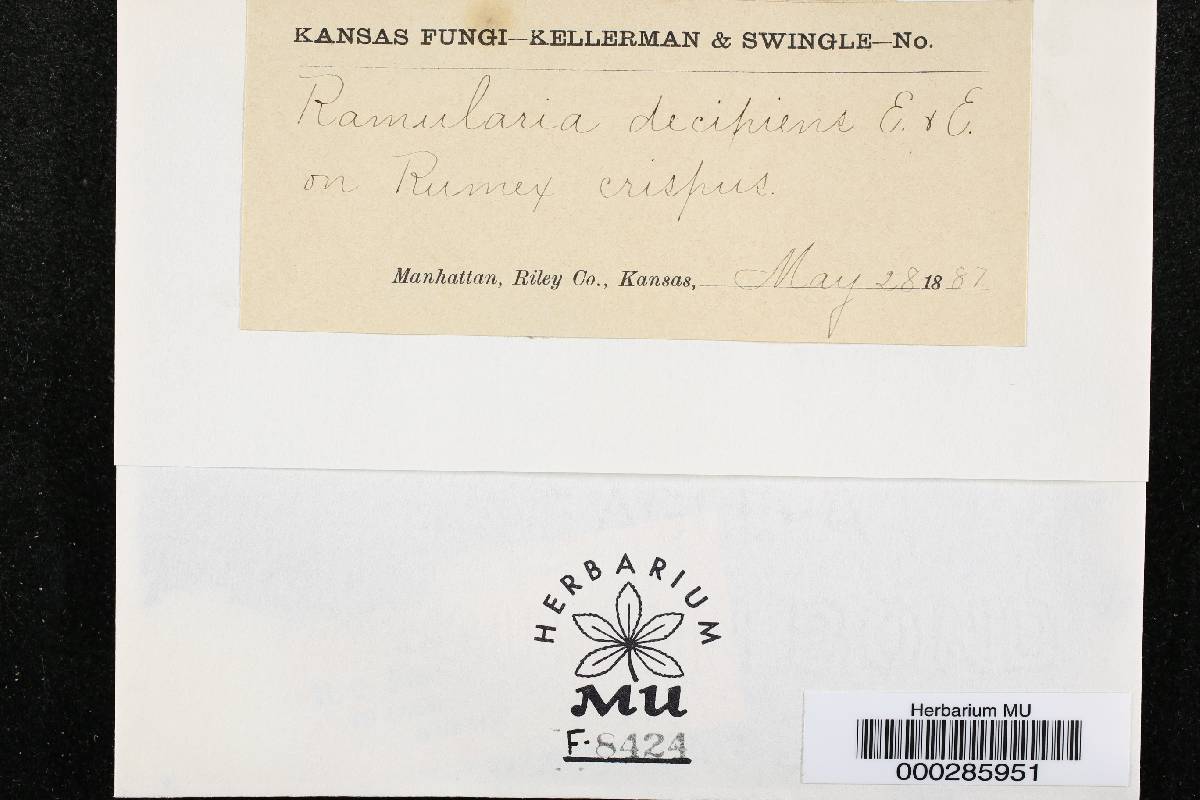 KANSAS FUNGI—KELLERMAN & SWINGLE—No.
Ramularia decipiens E. & E.
on Rumex crispus.
Manhattan, Riley Co., Kansas, May 28 1887
HERBARIUM
MU
F-8424
Herbarium MU
000285951